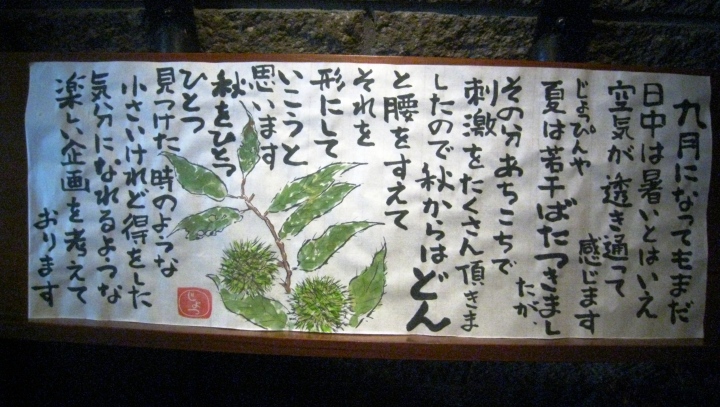 九月になってもまだ
日中は暑いとはいえ
空気が透き通って
感じます
じょっぴんや
夏は若干ばたつきまし
たが、
その分あちこちで
刺激をたくさん頂きま
したので秋からはどん
と腰をすえて
それを
形にして
いこうと
思います
秋をひとつ
ひとつ
見つけた時のような
小さいけれど得をした
気分になれるような
楽しい企画を考えて
おります